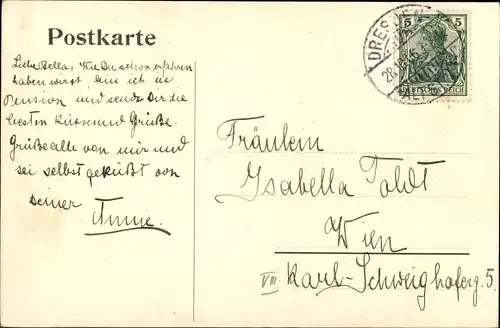 Postkarte
Liebe Bella, Wie Du schon erfahren
haben wirst, bin ich in
Pension und sende Dir die
besten Küsse und Grüße.
Grüße alle von mir und
sei selbst geküßt von
deiner
Fräulein
Isabella Toldt
Wien
VIII. Karl-Schweighoferg. 5.
5 5
DEUTSCHES REICH
DRESDEN
ALTST.